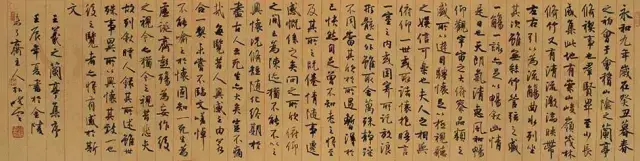 永和九年歲在癸丑暮春
之初會于會稽山陰之蘭亭
脩禊事也群賢畢至少長
咸集此地有崇山峻領茂林
脩竹又有清流激湍映帶
左右引以為流觴曲水列坐
其次雖無絲竹管弦之盛
一觴一詠亦足以暢敘幽情
是日也天朗氣清惠風和暢
仰觀宇宙之大俯察品類之
盛所以遊目騁懷足以極視聽
之娛信可樂也夫人之相與
俯仰一世或取諸懷抱晤言
一室之內或因寄所託放浪
形骸之外雖取舍萬殊靜躁
不同當其欣於所遇暫得於
己快然自足不知老之將至
及其所之既倦情隨事遷
感慨係之矣向之所欣俛仰
之間已為陳迹猶不能不以之
興懷況脩短隨化終期於
盡古人云死生亦大矣豈不痛
哉每覽昔人興感之由若
合一契未嘗不臨文嗟悼
不能喻之於懷固知一死生為
虛誕齊彭殤為妄作後
之視今亦猶今之視昔悲夫
故列敘時人錄其所述雖世
殊事異所以興懷其致一也
後之覽者亦將有感於斯
文
王羲之蘭亭集序
壬辰年夏書於金陵
齋主人